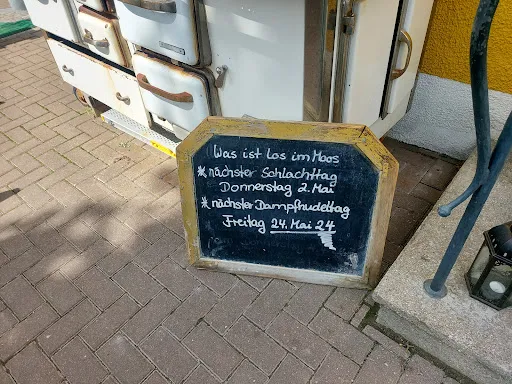 Was ist Los im Moos
* nächster Schlachttag
Donnerstag 2. Mai
* nächster Dampfnudeltag
Freitag 24. Mai 24